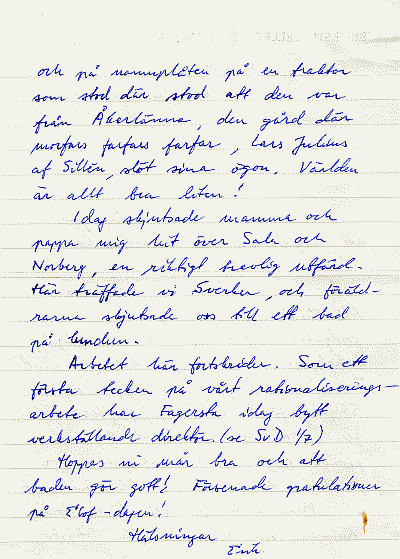 och på namnplåten på en traktor
som stod där stod att den var
från Åkerlänna, den gård där
morfars farfars farfar, Lars Julius
af Sillén, slöt sina ögon. Världen
är allt bra liten!
Idag skjutsade mamma och
pappa mig hit över Sala och
Norberg, en riktigt trevlig utfärd.
Här träffade vi Sverker, och föräld-
rarna skjutsade oss till ett bad
på lunchen.
Arbetet här fortskrider. Som ett
första tecken på vårt rationaliserings-
arbete har Fagersta idag bytt
verkställande direktör. (se SvD 1/7)
Hoppas ni mår bra och att
baden gör gott! Försenade gratulationer
på Elof-dagen!
Hälsningar